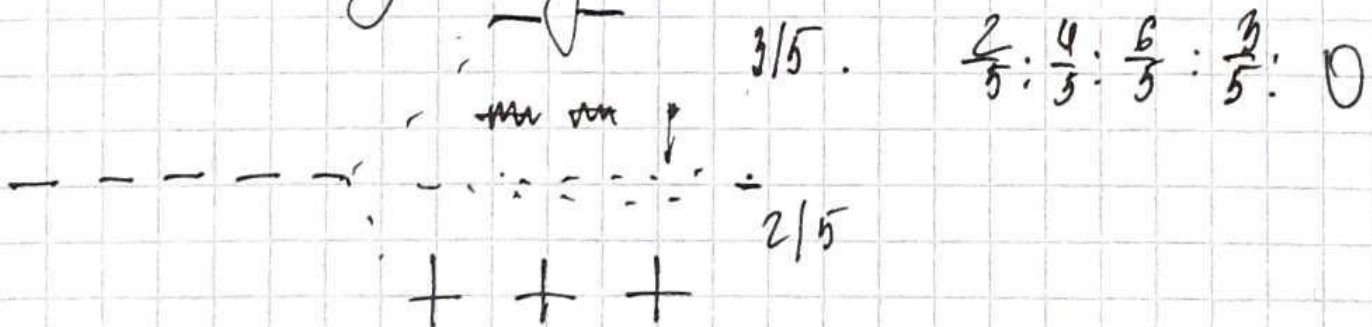 3/5. 2/5 : 4/5 : 6/5 : 3/5 : 0
2/5
+ + +